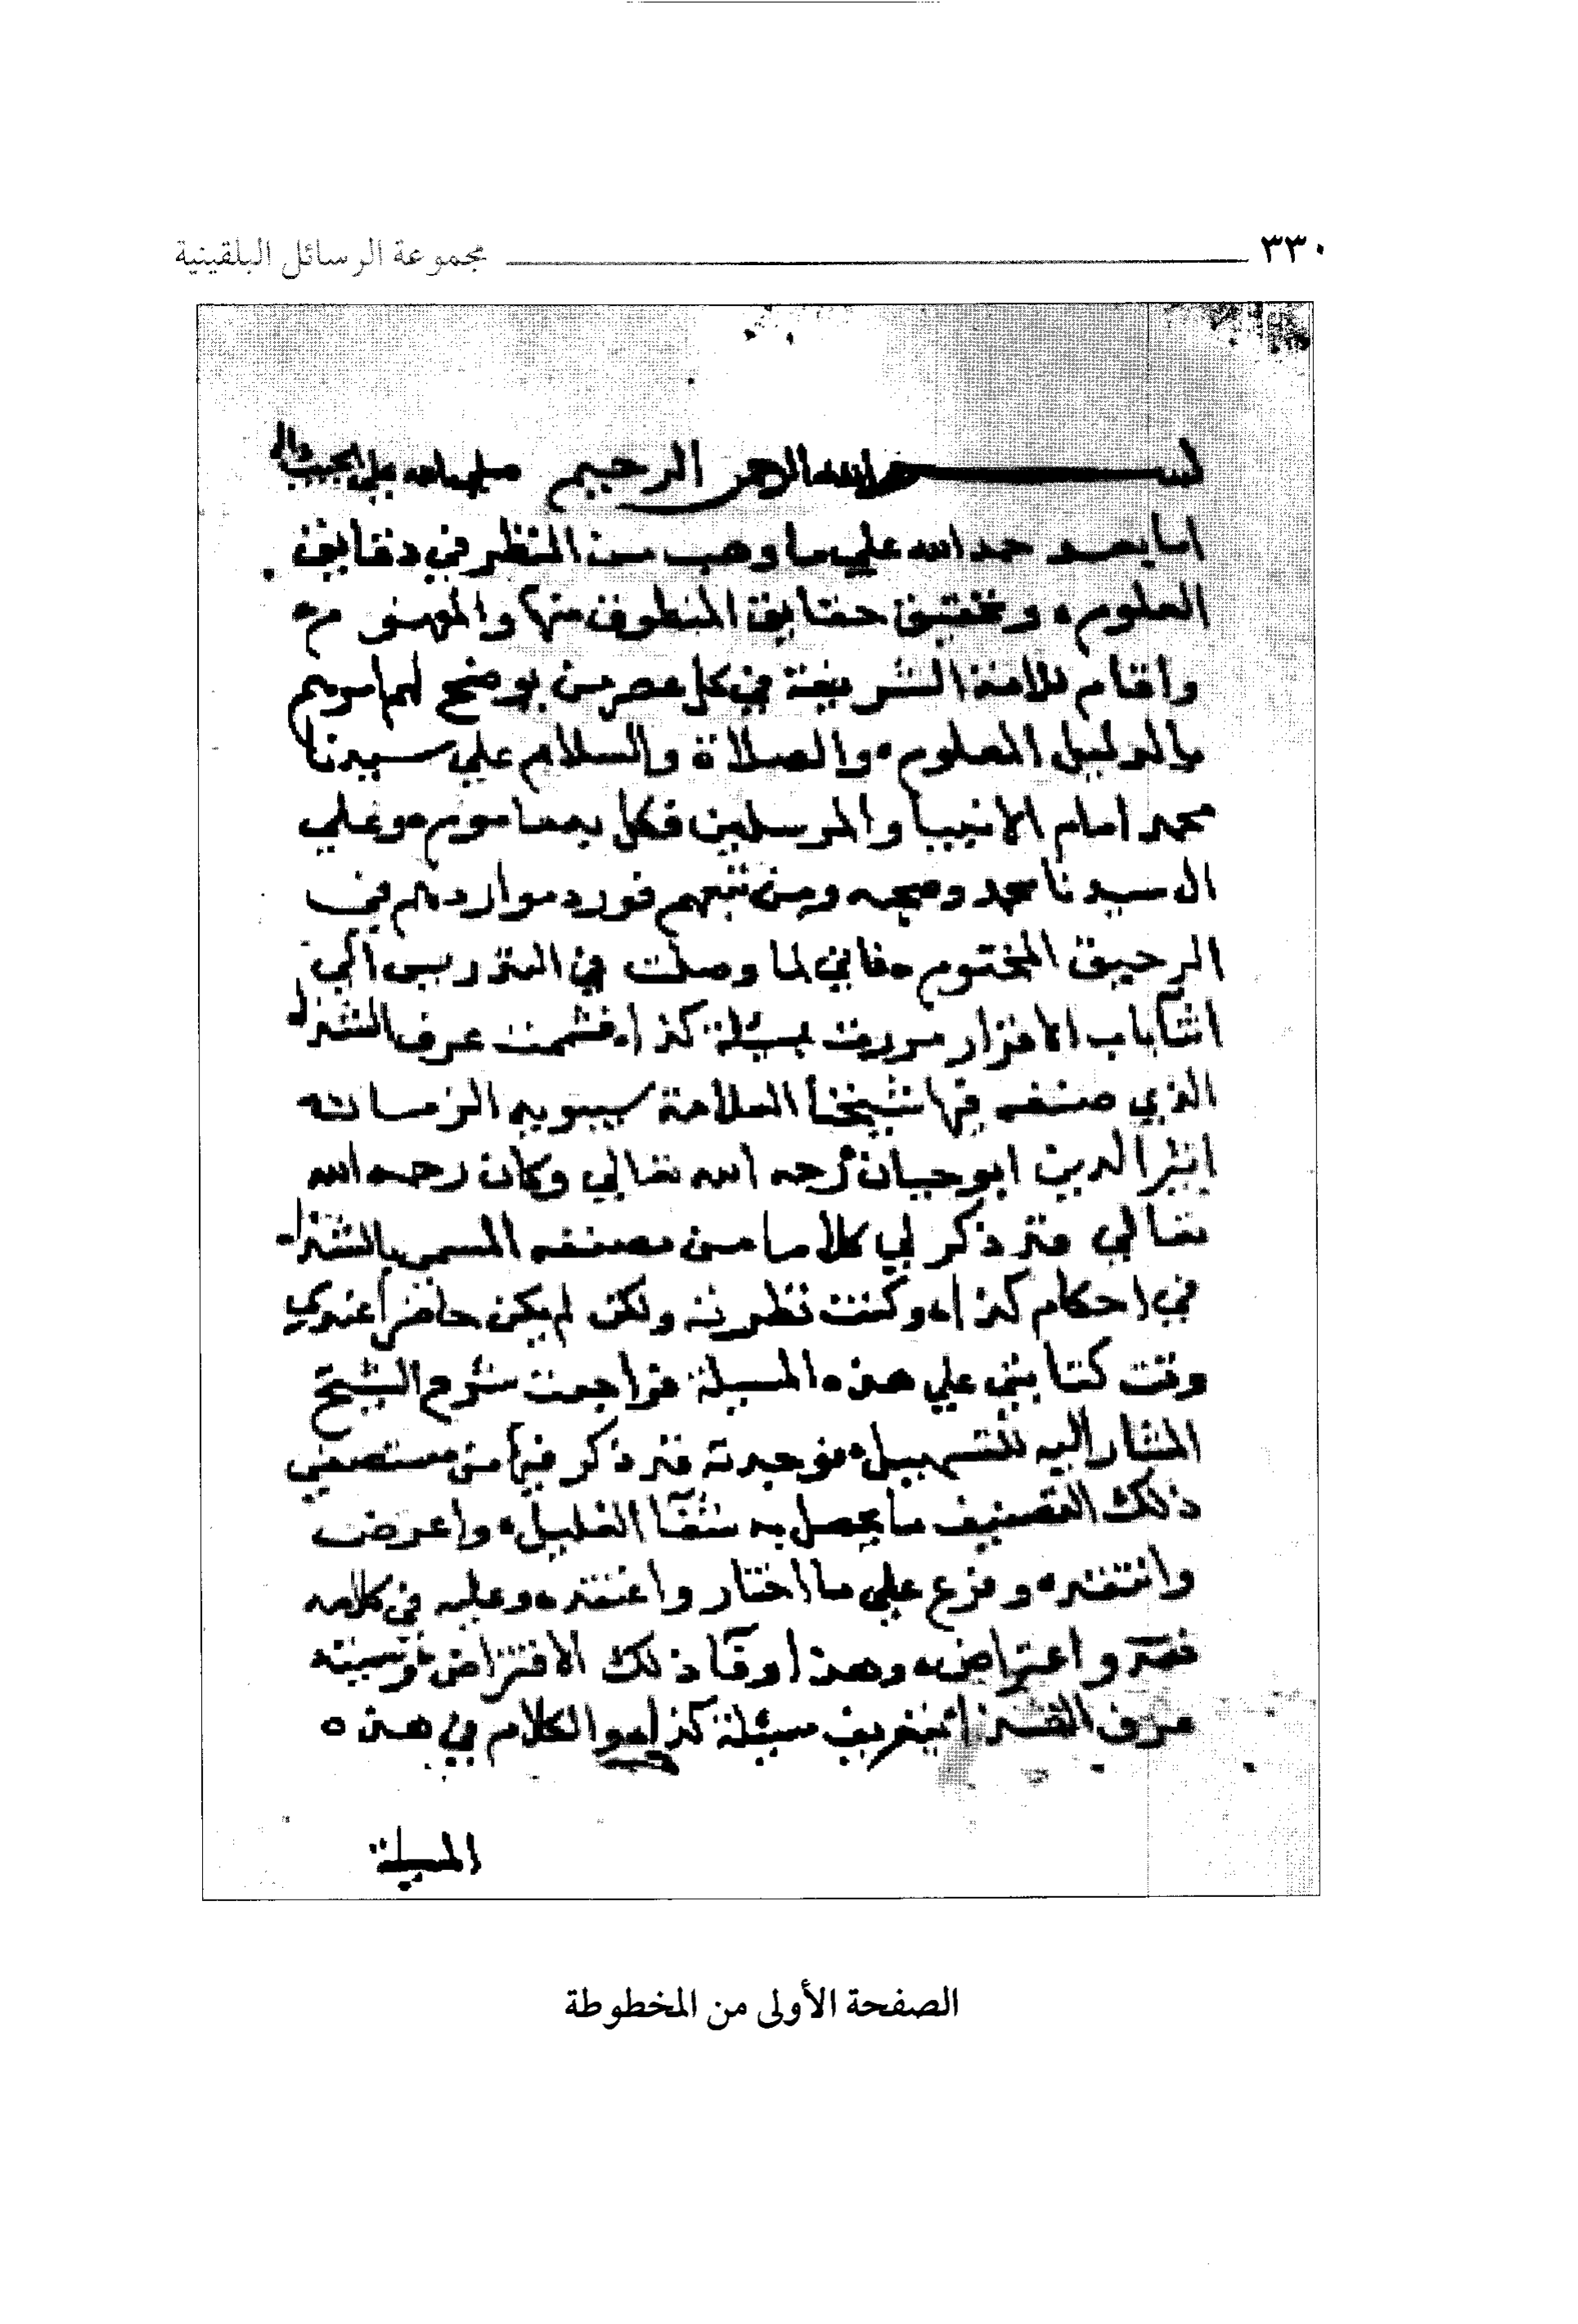 ٣٣٠ مجموعة الرسائل البلقينية
بسم الله الرحمن الرحيم صلى الله على الحبيب واله
اما بعد حمد الله علي ما وهب من النظر في دقايق
العلوم، وتحقيق حقايق المنطوق منها والمفهوم،
واقام للامة الشريفة في كل عصر من يوضح لهم امورهم
بالدليل المعلوم، والصلاة والسلام علي سيدنا
محمد امام الانبيا والمرسلين فكل به ماموم، وعلي
ال سيدنا محمد وصحبه ومن تبعهم فورد مواردهم في
الرحيق المختوم، فاني لما وصلت في التدريس الي
اثنا باب الاقرار مررت بمسئلة كذا، فشممت عرف الشذا
الذي صنفه فيها شيخنا العلامة سيبويه الزمانه
اثير الدين ابو حيان رحمه الله تعالي وكان رحمه الله
تعالي قد ذكر لي كلاما من مصنفه المسمي بالشذا
في احكام كذا، وكنت نظرته ولكن لم يكن حاضرا عندي
وقت كتابتي علي هذه المسيلة فراجعت شرح الشيخ
المشار اليه للتسهيل، فوجدته قد ذكر فيها من مستصفي
ذلك التصنيف ما يحصل به شفآ الغليل، واعرض
وانتقد، وفرع علي ما اختار واعتقد، وعليه في كلامه
نقد واعتراض، وهذا اوآن ذلك الافتراض، وسميته
عرف الشذا في تعريف مسئلة كذا، والكلام في هذه
المسيلة
الصفحة الأولى من المخطوطة